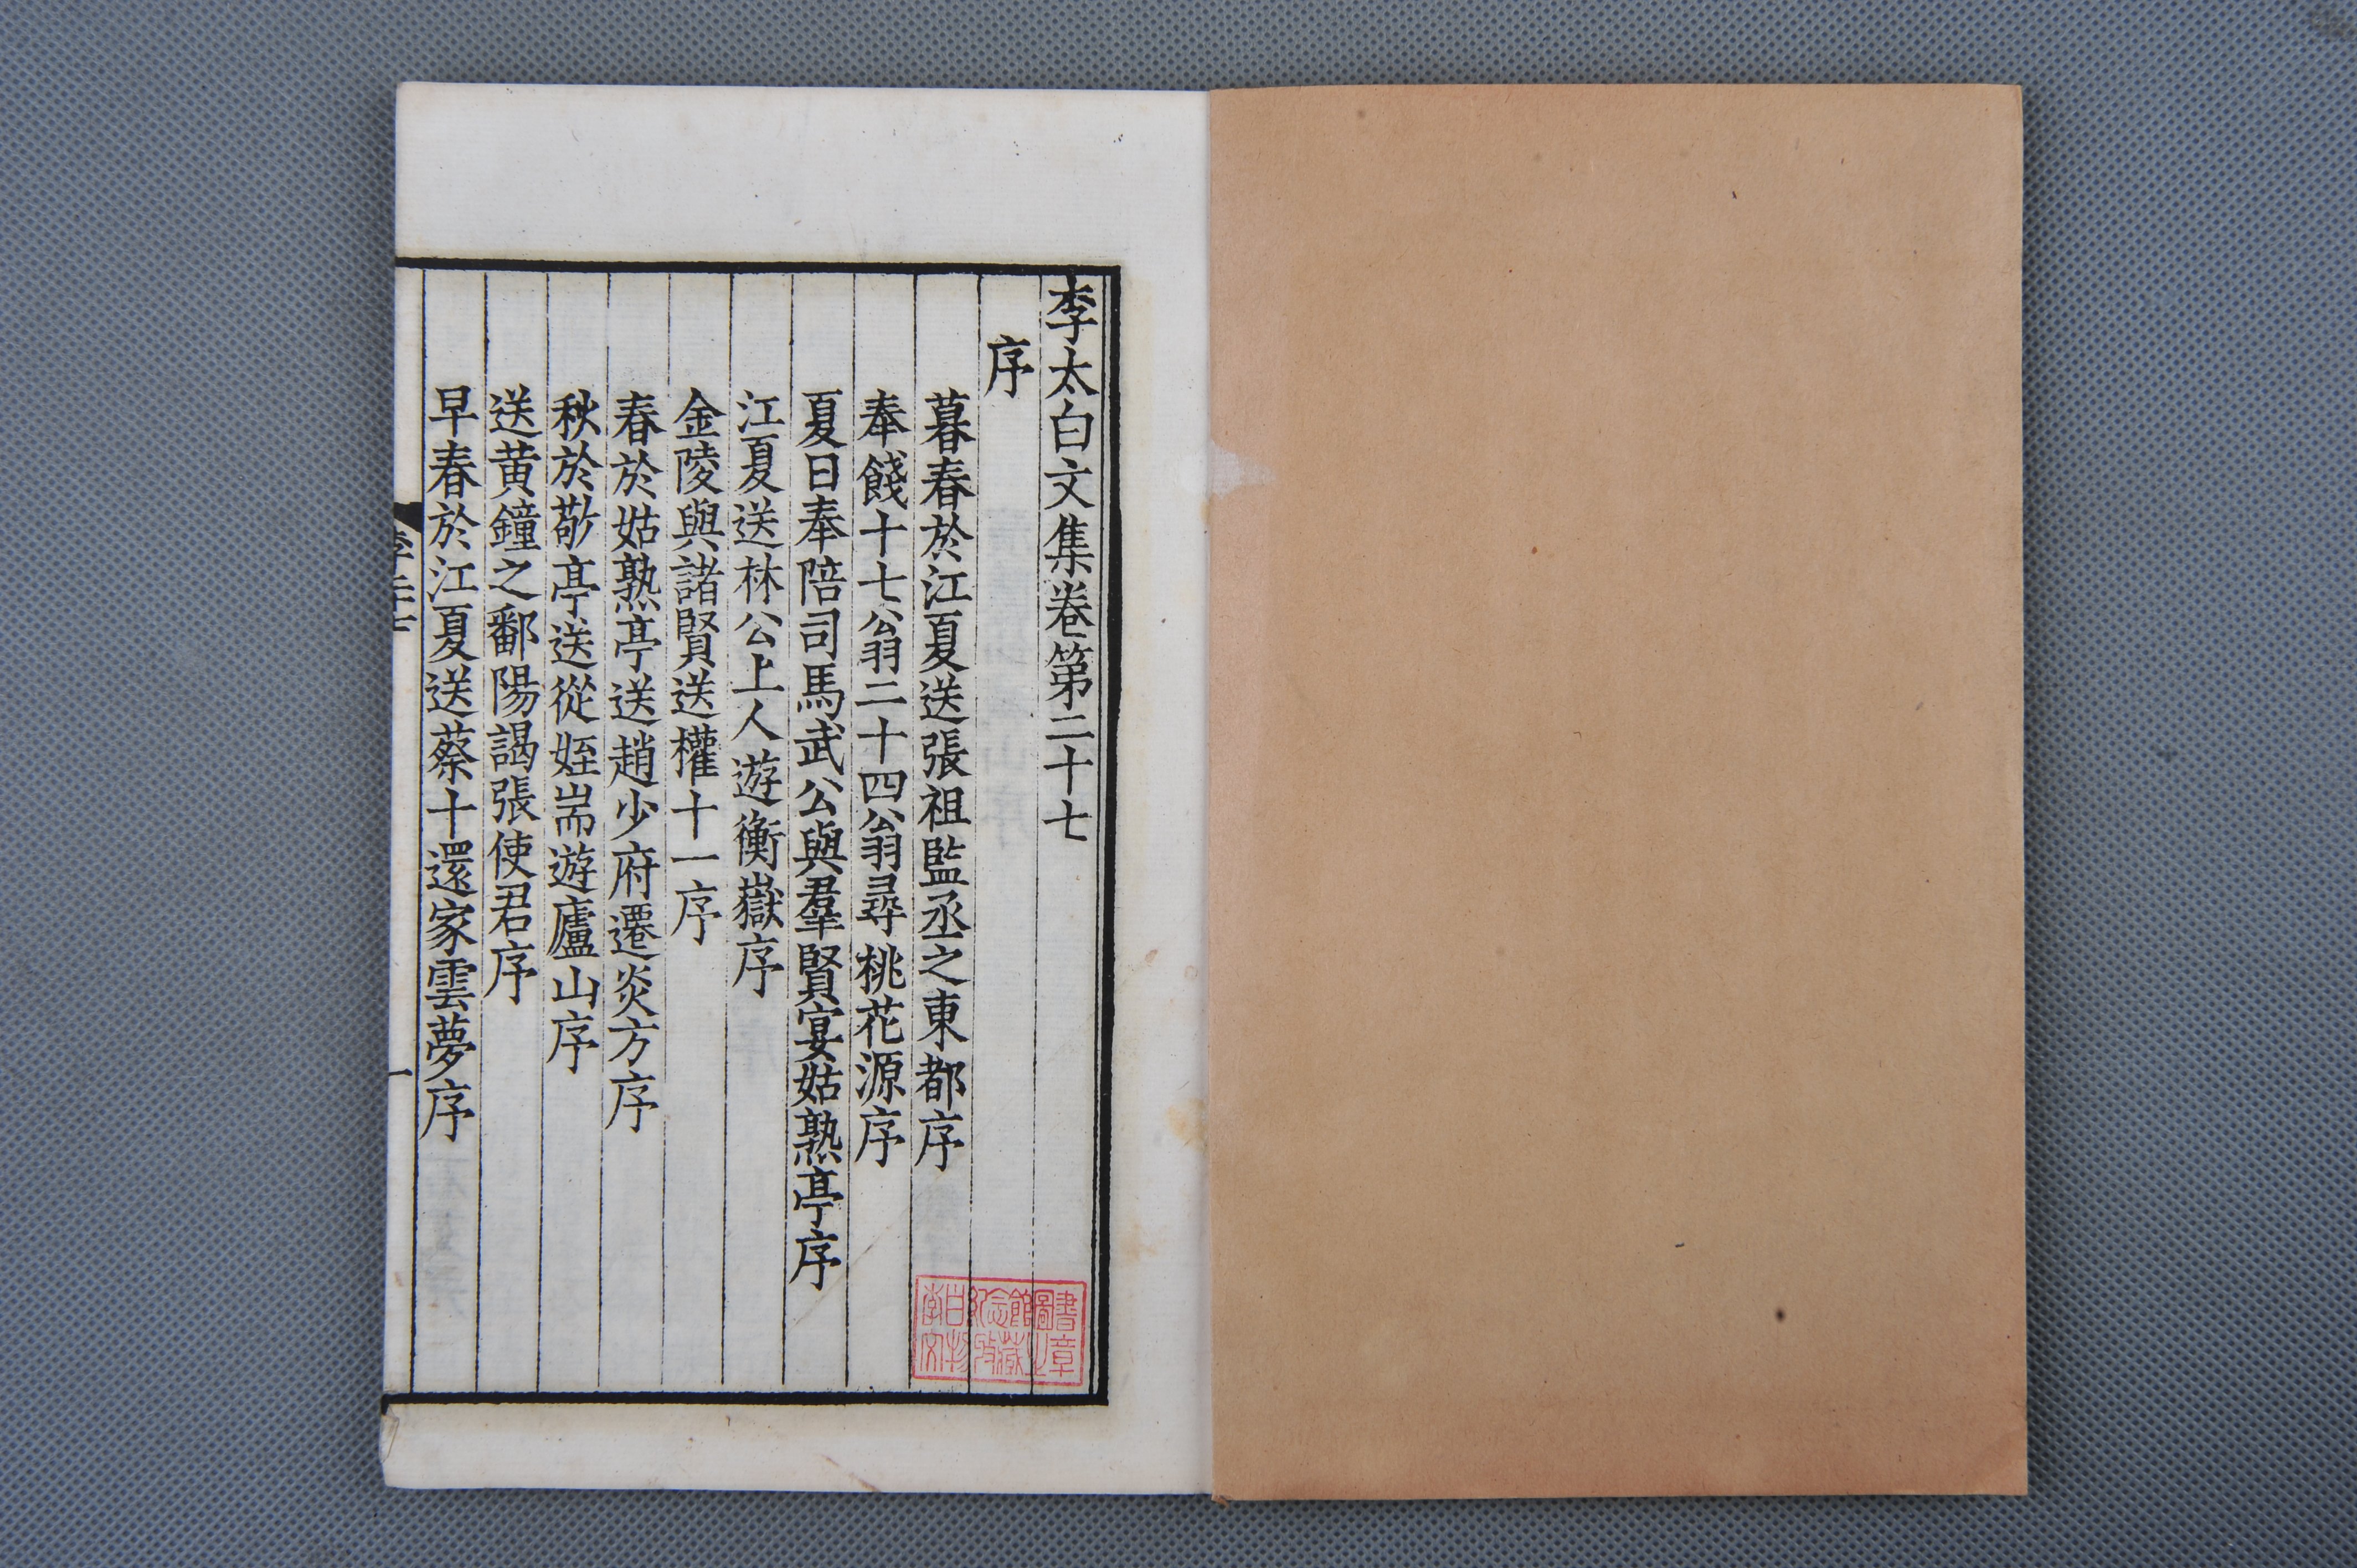 李太白文集卷第二十七
序
暮春於江夏送張祖監丞之東都序
奉餞十七翁二十四翁尋桃花源序
夏日奉陪司馬武公與羣賢宴姑熟亭序
江夏送林公上人遊衡嶽序
金陵與諸賢送權十一序
春於姑熟亭送趙少府遷炎方序
秋於敬亭送從姪耑遊廬山序
送黄鐘之鄱陽謁張使君序
早春於江夏送蔡十還家雲夢序
李二十七
一
書章
圖之
館藏